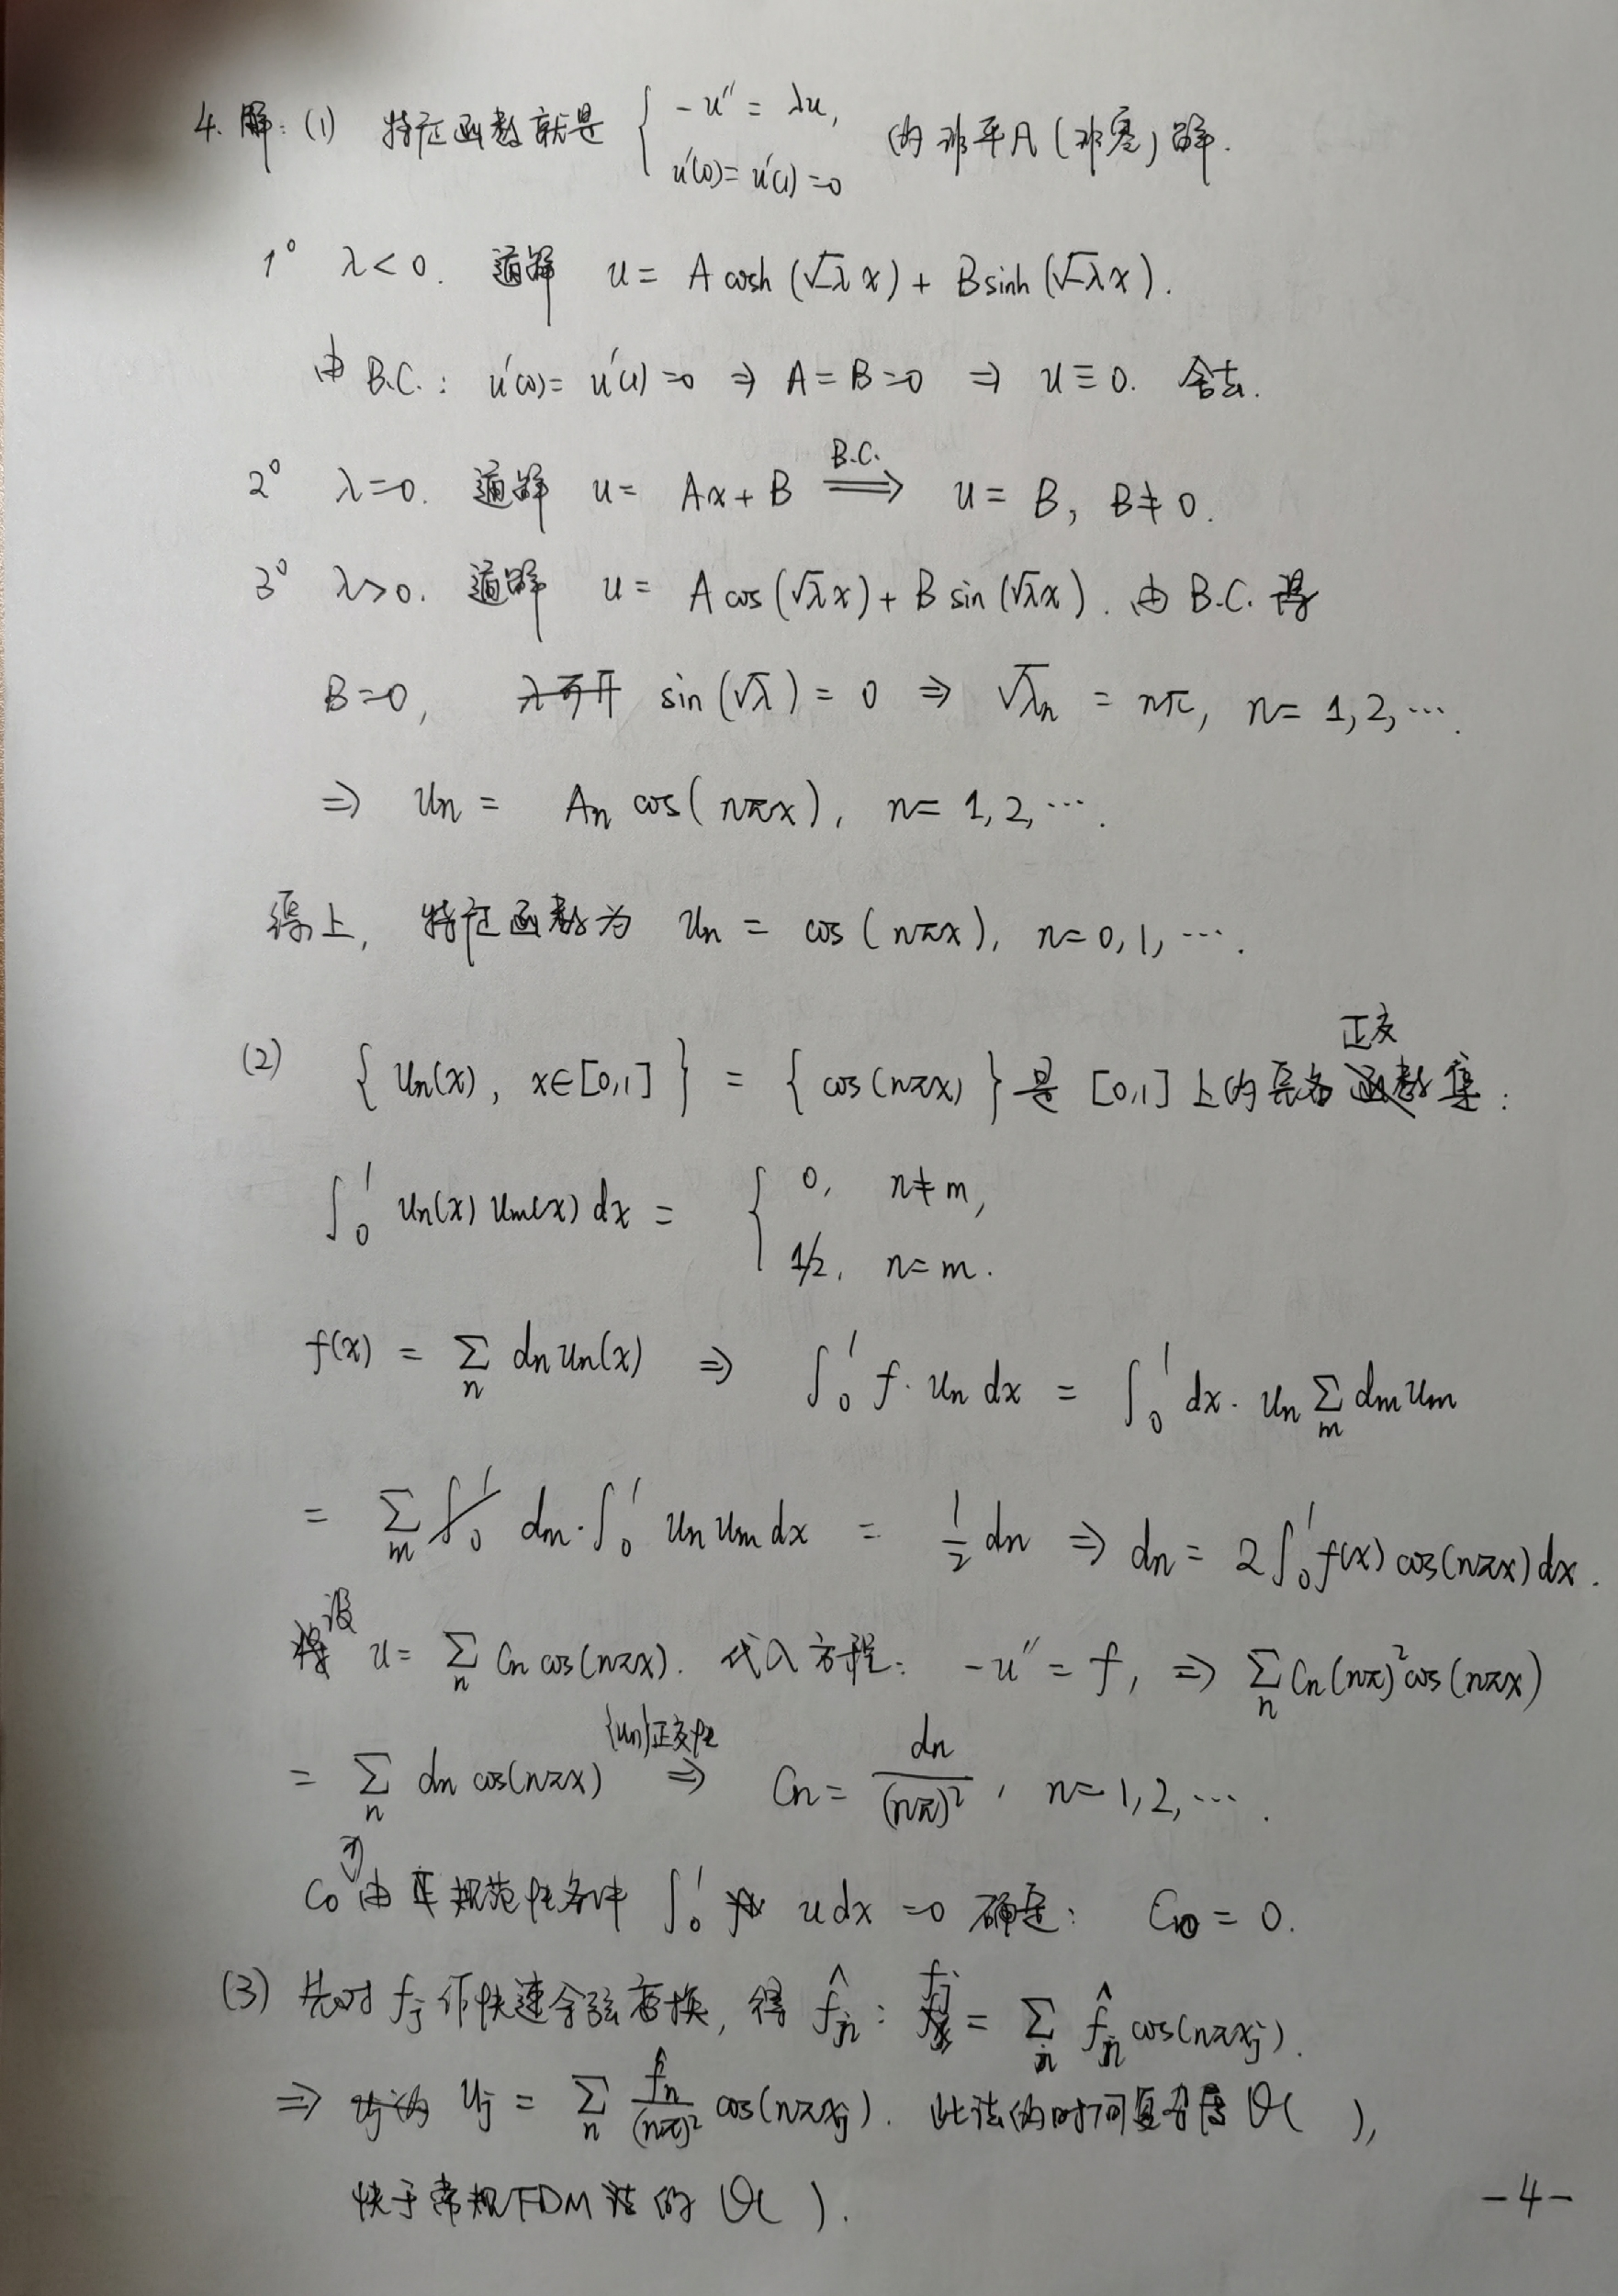 4. 解: (1) 特征函数就是 { -u'' = λu, u'(0) = u'(1) = 0 的非平凡(非零)解.
1° λ<0. 通解 u = A cosh (√-λ x) + B sinh (√-λ x).
由 B.C. : u'(0) = u'(1) = 0 ⇒ A = B = 0 ⇒ u ≡ 0. 舍去.
2° λ=0. 通解 u = Ax + B ⟹(B.C.) u = B, B≠0.
3° λ>0. 通解 u = A cos (√λ x) + B sin (√λ x). 由 B.C. 得
B=0, sin (√λ) = 0 ⇒ √λn = nπ, n = 1, 2, ⋯.
⇒ un = An cos (nπx), n = 1, 2, ⋯.
综上, 特征函数为 un = cos (nπx), n = 0, 1, ⋯.
(2) { un(x), x∈[0,1] } = { cos(nπx) } 是 [0,1] 上的完备正交函数集:
∫₀¹ un(x) um(x) dx = { 0, n≠m, 1/2, n=m.
f(x) = Σn dn un(x) ⇒ ∫₀¹ f · un dx = ∫₀¹ dx · un Σm dm um
= Σm dm · ∫₀¹ un um dx = 1/2 dn ⇒ dn = 2 ∫₀¹ f(x) cos(nπx) dx.
设 u = Σn Cn cos(nπx). 代入方程: -u'' = f, ⇒ Σn Cn (nπ)² cos(nπx)
= Σn dn cos(nπx) ⇒({un}正交性) Cn = dn/(nπ)², n = 1, 2, ⋯.
C0 可由规范性条件 ∫₀¹ u dx = 0 确定: C0 = 0.
(3) 先对 fj 作快速余弦变换, 得 f̂n : fj = Σn f̂n cos(nπxj).
⇒ uj = Σn f̂n/(nπ)² cos(nπxj). 此法的时间复杂度 O( ),
快于常规FDM法的 O( ).
-4-